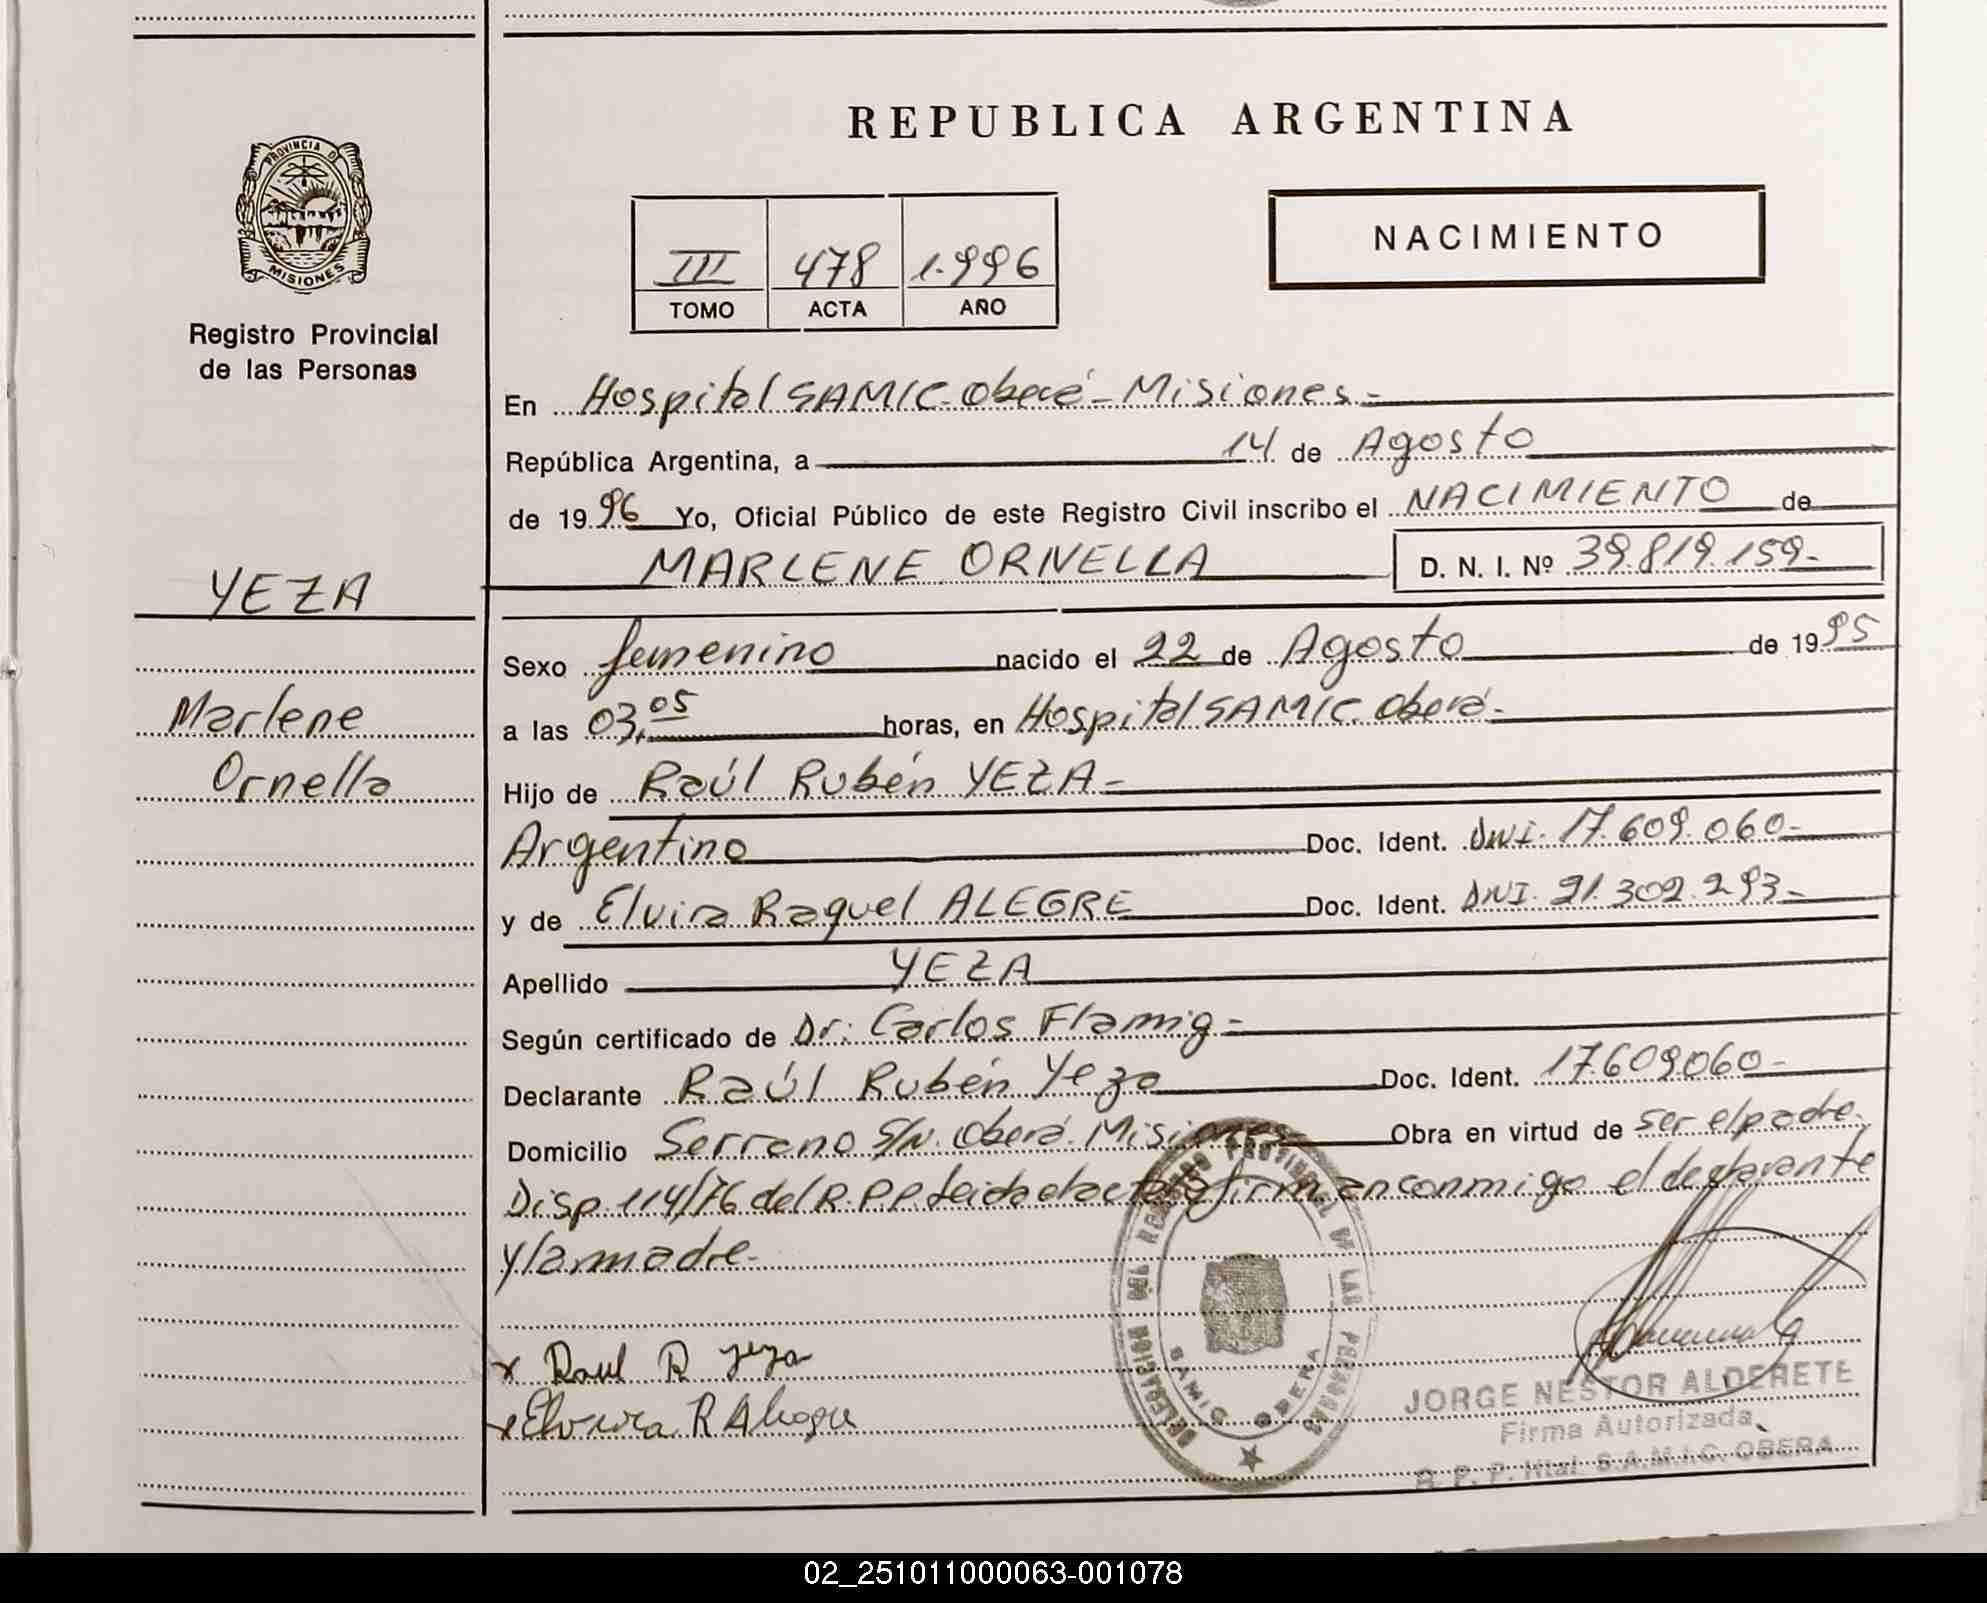 REPUBLICA ARGENTINA
PROVINCIA DE
MISIONES
Registro Provincial
de las Personas
III 478 1.996
TOMO ACTA AÑO
NACIMIENTO
En Hospital SAMIC. Oberá - Misiones.-
República Argentina, a 14 de Agosto
de 1996 Yo, Oficial Público de este Registro Civil inscribo el NACIMIENTO de
MARLENE ORNELLA D. N. I. Nº 39.819.159-
YEZA
Marlene
Ornella
Sexo femenino nacido el 22 de Agosto de 1995
a las 03,05 horas, en Hospital SAMIC. Oberá-
Hijo de Raúl Rubén YEZA-
Argentino Doc. Ident. DNI. 17.609.060-
y de Elvira Raquel ALEGRE Doc. Ident. DNI. 21.302.293-
Apellido YEZA
Según certificado de Dr: Carlos Flamig-
Declarante Raúl Rubén Yeza Doc. Ident. 17.609.060-
Domicilio Serrano S/N. Oberá. Misiones Obra en virtud de ser el padre.
Disp. 114/76 del R.P.P. Leida el acta la firman conmigo el declarante
y la madre-
x Raul R Yeza
x Elvira R Alegre
DELEGACION DEL REGISTRO PROVINCIAL DE LAS PERSONAS
SAMIC OBERA
JORGE NESTOR ALDERETE
Firma Autorizada
R. P. P. Htal. S.A.M.I.C. OBERA
02_251011000063-001078